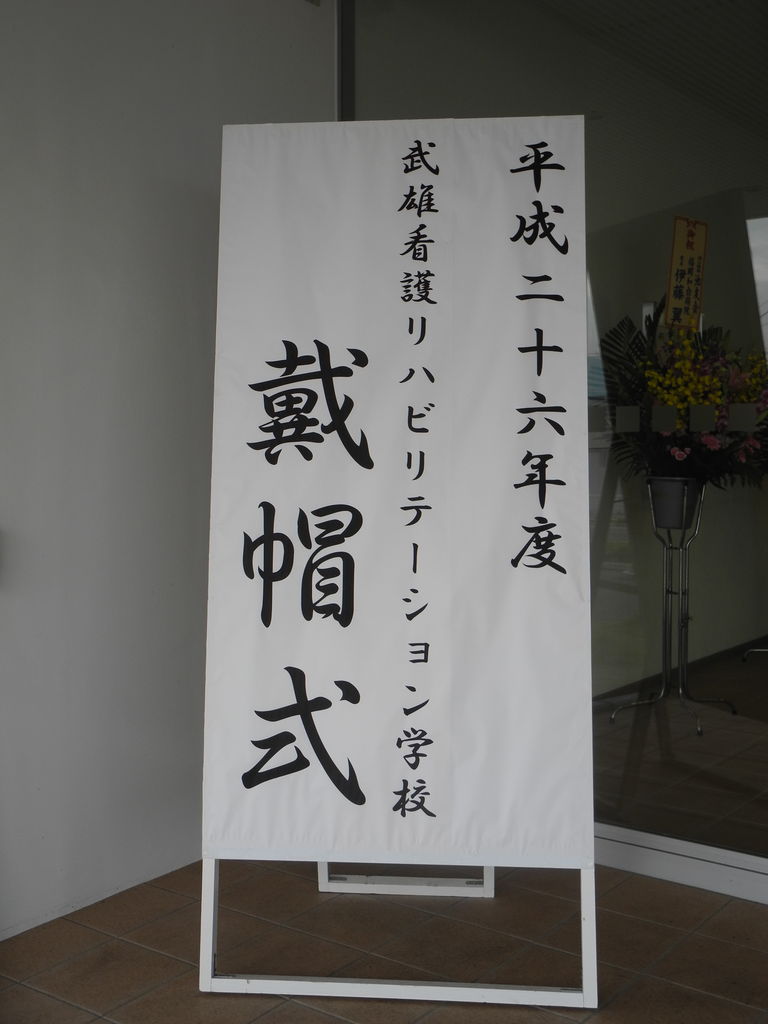 平成二十六年度
武雄看護リハビリテーション学校
戴帽式
御祝
伊藤翼